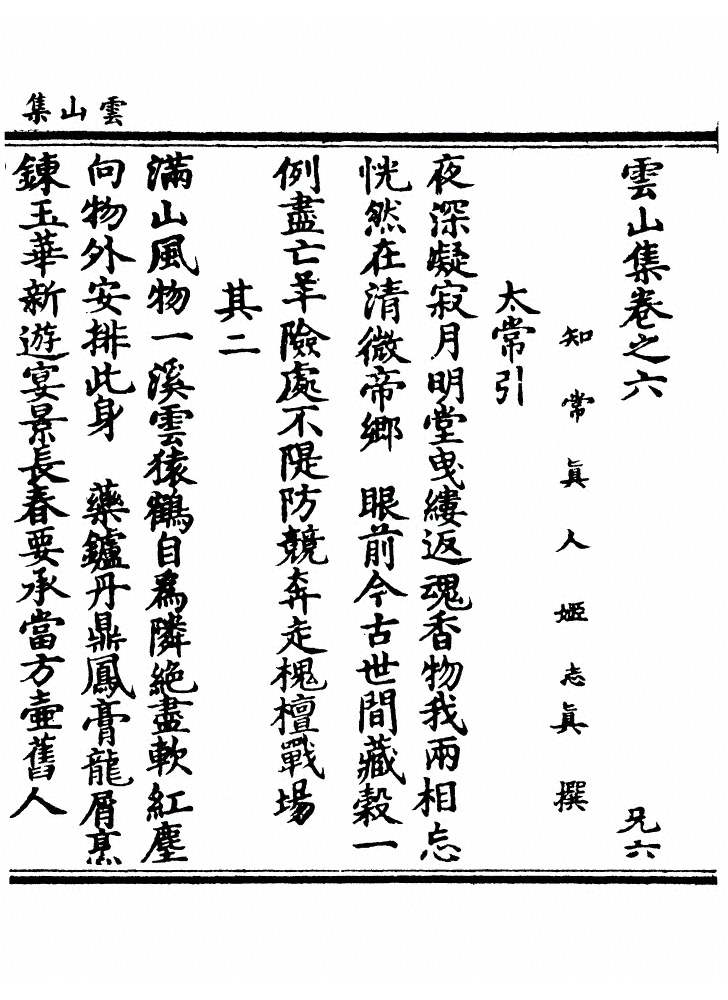 雲山集
雲山集卷之六　兄六
知常眞人姬志眞撰
太常引
夜深凝寂月明堂曳縷返魂香物我兩相忘
恍然在清微帝鄉　眼前今古世間藏穀一
例盡亡羊險處不隄防競奔走槐檀戰場
其二
滿山風物一溪雲猿鶴自爲隣絕盡軟紅塵
向物外安排此身　藥鑪丹鼎鳳膏龍屑烹
鍊玉華新遊宴景長春要承當方壺舊人